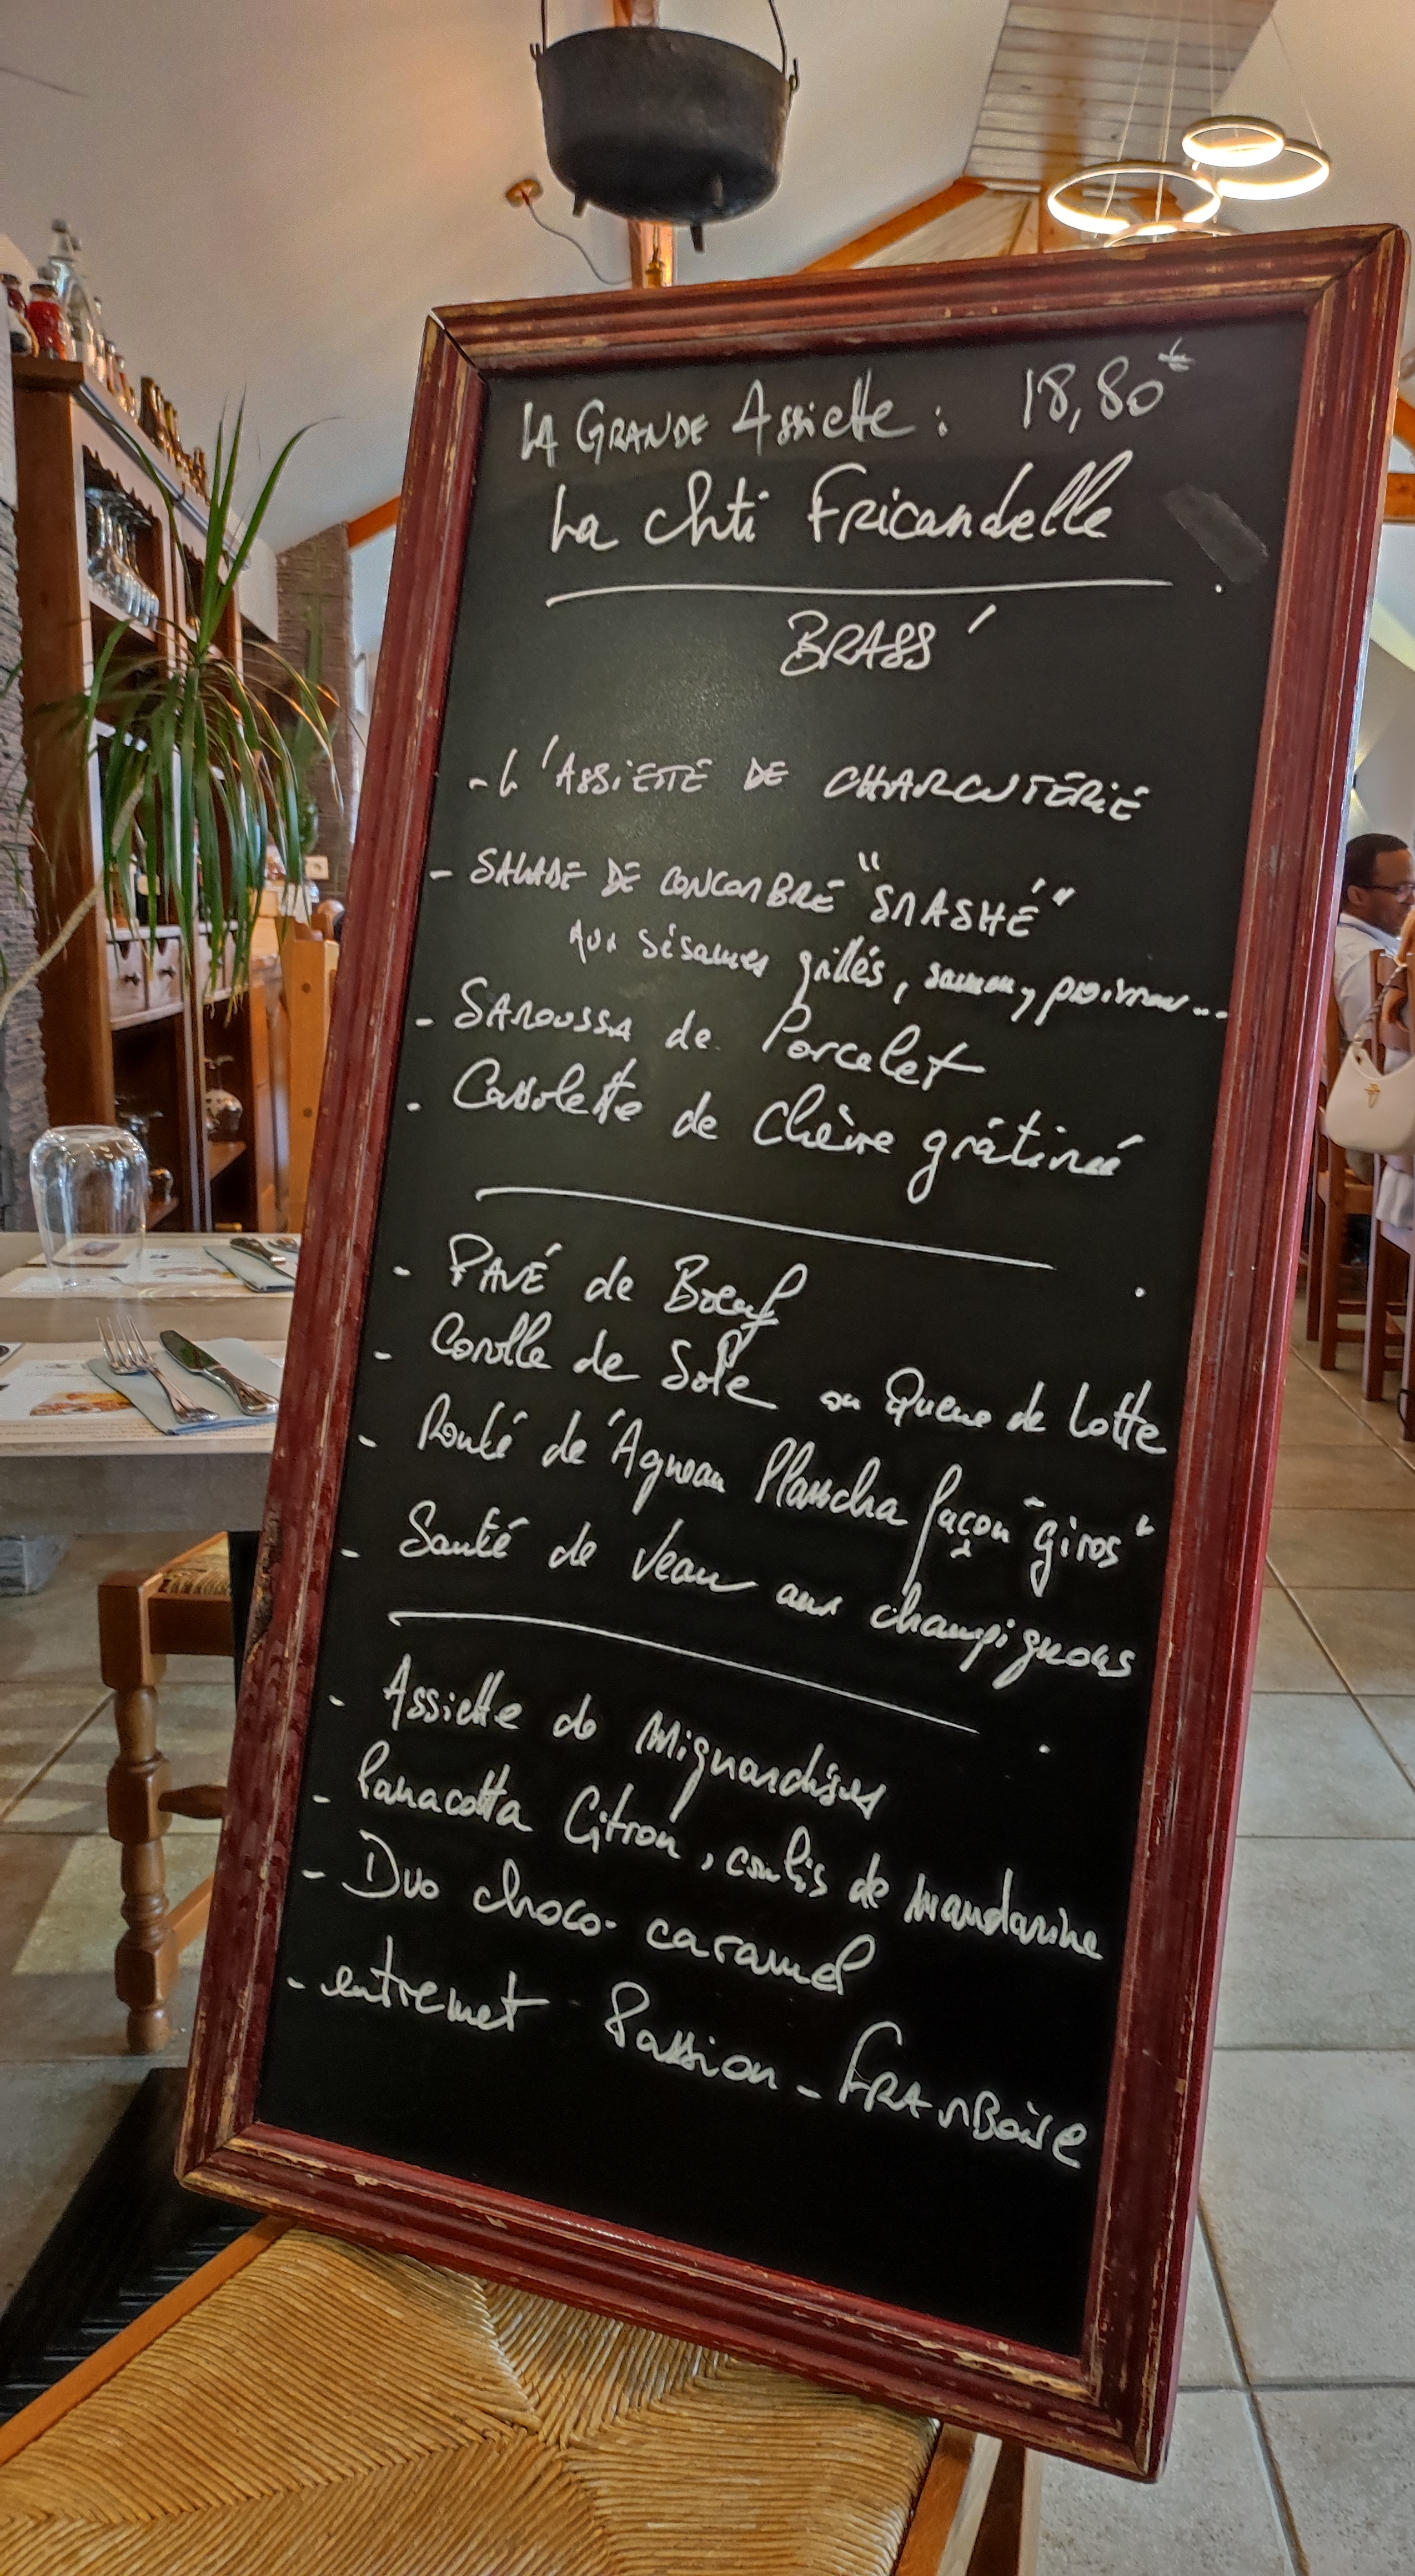 LA GRANDE Assiette : 18,80€
La chti Fricandelle
BRASS'
- L'ASSIETTE DE CHARCUTERIE
- SALADE DE CONCOMBRE "SMASHÉ"
Aux sésames grillés, saumon, poivron...
- SAMOUSSA de Porcelet
- Cassolette de Chèvre grâtiné
- PAVÉ de Boeuf
- Corolle de Sole ou Queue de Lotte
- Roulé de Agneau Plancha façon "Giros"
- Sauté de Veau aux champignons
- Assiette de Mignardises
- Panacotta Citron, coulis de mandarine
- Duo choco-caramel
- entremet Passion - FRAMBoise